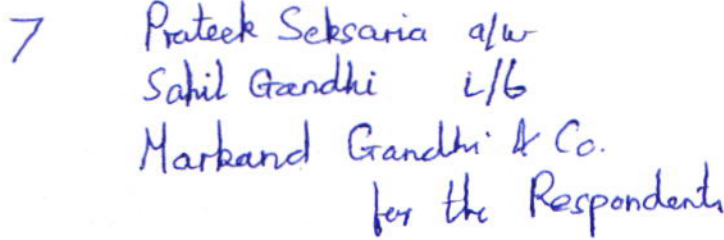 7 Prateek Seksaria a/w
Sahil Gandhi i/b
Markand Gandhi & Co.
for the Respondents